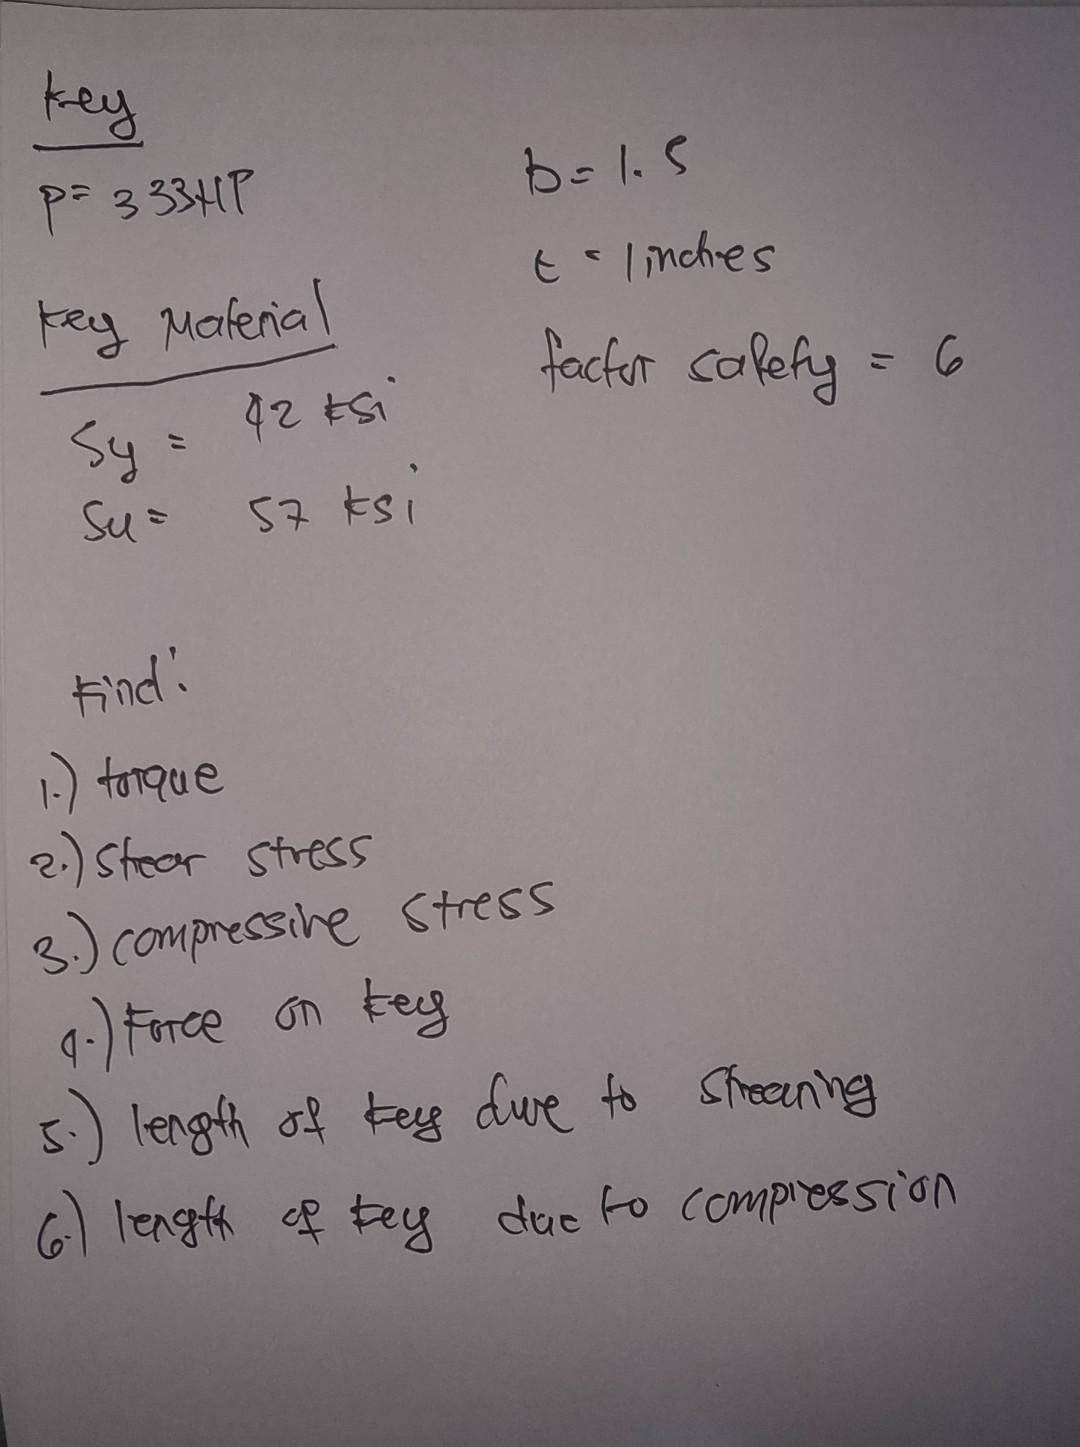 key
P= 333HP
b= 1.5
t = 1 inches
key Material
factor safety = 6
Sy = 42 ksi
Su = 57 ksi
Find:
1.) torque
2.) Shear stress
3.) compressive stress
4.) Force on key
5.) length of key due to Shearing
6.) length of key due to compression